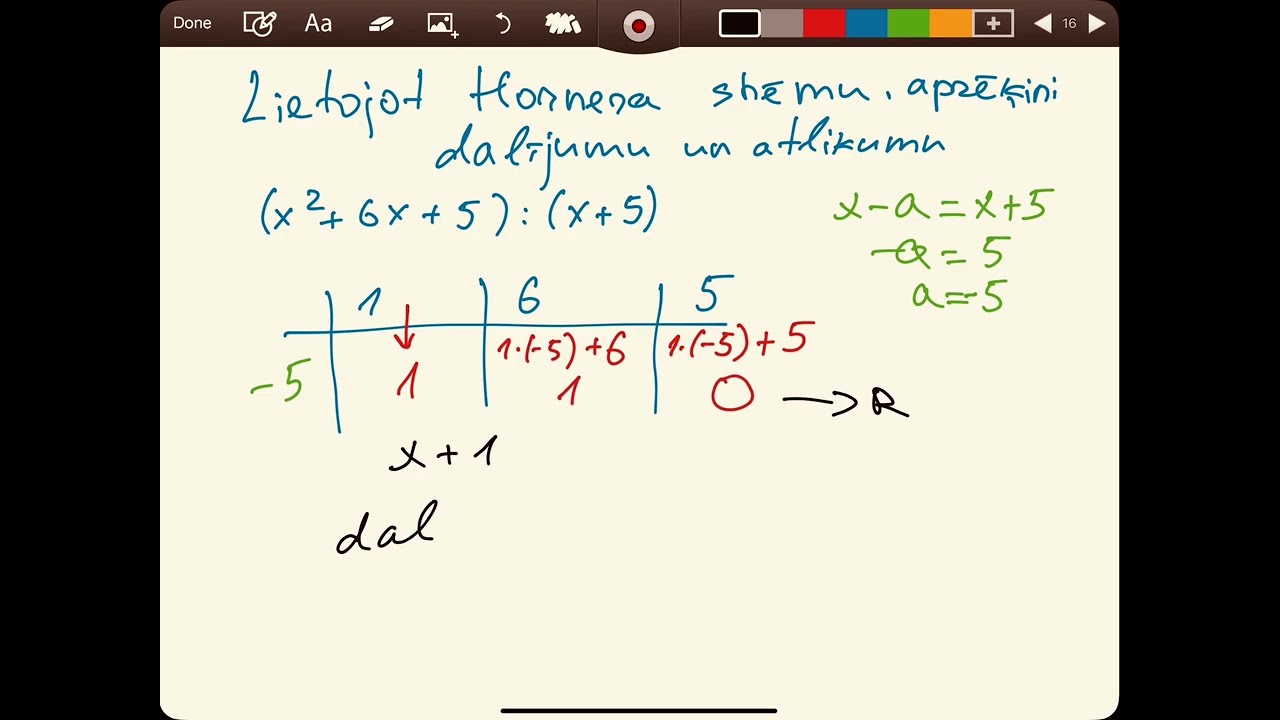 Done Aa 16
Lietojot Hornera shēmu, aprēķini
dalījumu un atlikumu
(x²+6x+5):(x+5)
x-a=x+5
-a=5
a=-5
1 6 5
1·(-5)+6 1·(-5)+5
-5 1 1 0 → R
x+1
dal